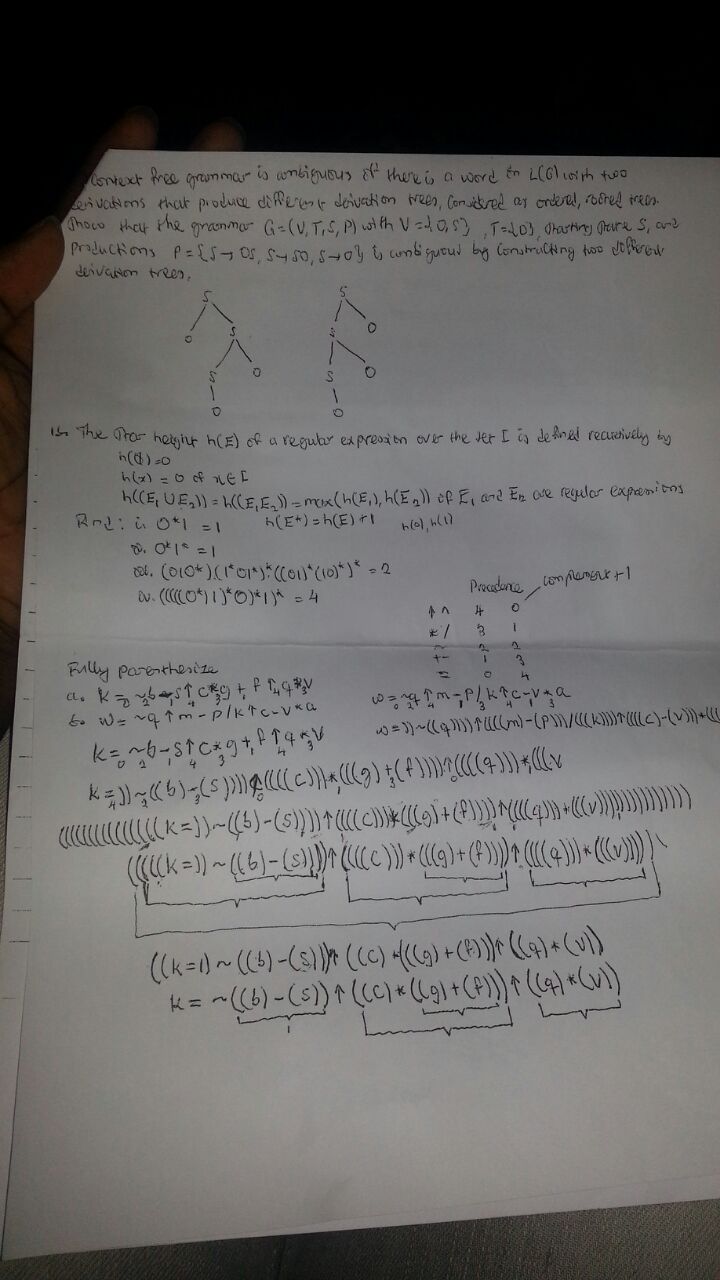 context free grammar is ambiguous if there is a word in L(G) with two
derivations that produce different derivation trees, considered as ordered, rooted trees.
Show that the grammar G=(V, T, S, P) with V={0, S}, T={0}, starting state S, and
productions P={S→0S, S→S0, S→0} is ambiguous by constructing two different
derivation trees.
S S
0 S S 0
S 0 S 0
0 0
The star height h(E) of a regular expression over the set I is defined recursively by
h(∅)=0
h(x) = 0 if x∈I
h((E₁∪E₂)) = h((E₁E₂)) = max(h(E₁), h(E₂)) if E₁ and E₂ are regular expressions
i. 0*1 = 1 h(E*)=h(E)+1 h(0), h(1)
0*1* = 1
(0*01)*((01)*(10)*)* = 2
iv. (((((0*)1)*0)*1)* = 4
Precedence complement +1
↑ ^ 4 0
* / 3 1
~ 2 2
+ - 1 3
= 0 4
Fully parenthesize
a. k=~b-s↑c*g+f↑q*v w=~q↑m-p/k↑c-v*a
b. w=~q↑m-p/k↑c-v*a
w=))~((q))))↑((((m)-(p))/(((k))))↑((((c)-(v)))*(((
k=~b-s↑c*g+f↑q*v
k=))~((b)-(s))))↑((((c)))*(((g)+(f))))↑((((q)))*(((v
((((((((((((((k=))~((b)-(s))))↑((((c)))*(((g)+(f))))↑((((q)))+(((v))))))))))))))))
(((((k=))~((b)-(s))))↑((((c)))*(((g)+(f))))↑((((q)))*(((v))))))
((k=1)~((b)-(s)))↑((c)*(((g)+(f)))↑((q)*(v))
k=~((b)-(s))↑((c)*((g)+(f)))↑((q)*(v))